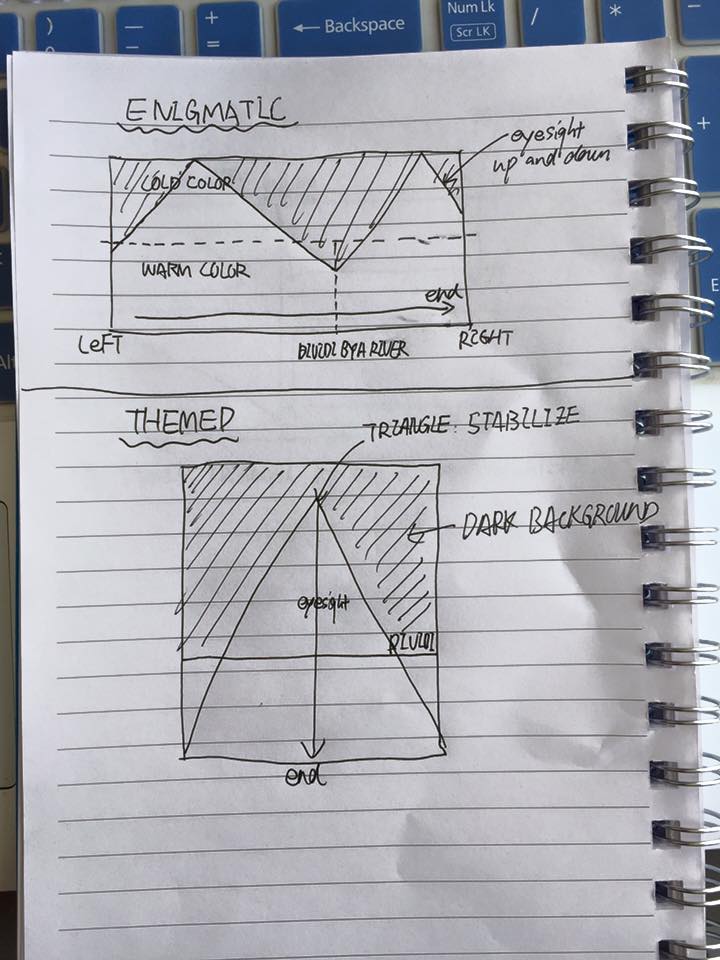 )
0
—
-
+
=
← Backspace
Num Lk
Scr LK
/
*
-
+
E
Alt
ENIGMATIC
eyesight
up and down
COLD COLOR
WARM COLOR
end
LEFT
DIVIDI BY A RIVER
RIGHT
THEMED
TRIANGLE: STABILIZE
DARK BACKGROUND
eyesight
DIVIDI
end